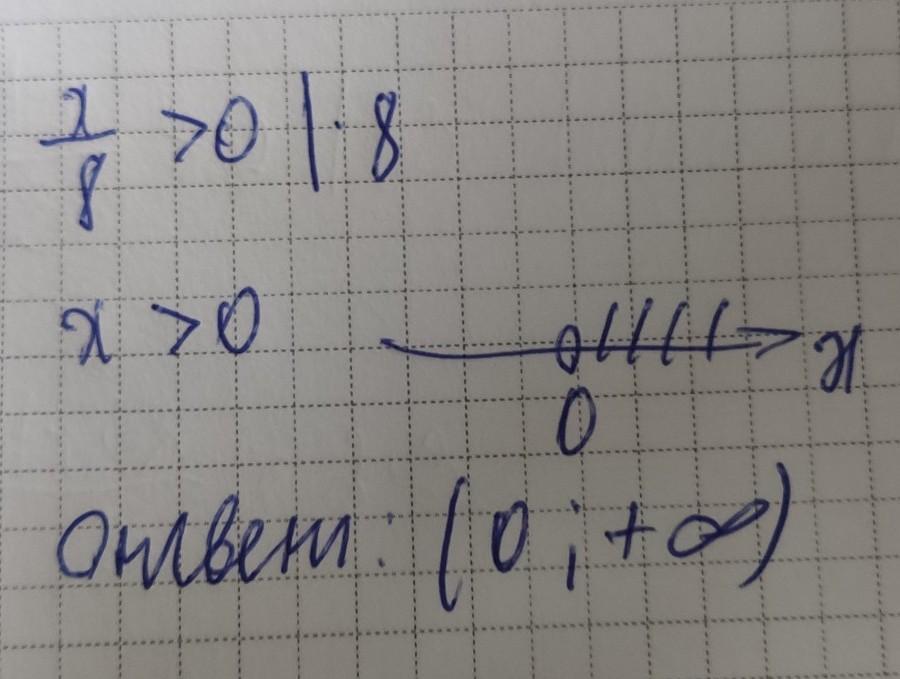 x/8 > 0 | · 8
x > 0
x
0
ответ: (0; +∞)